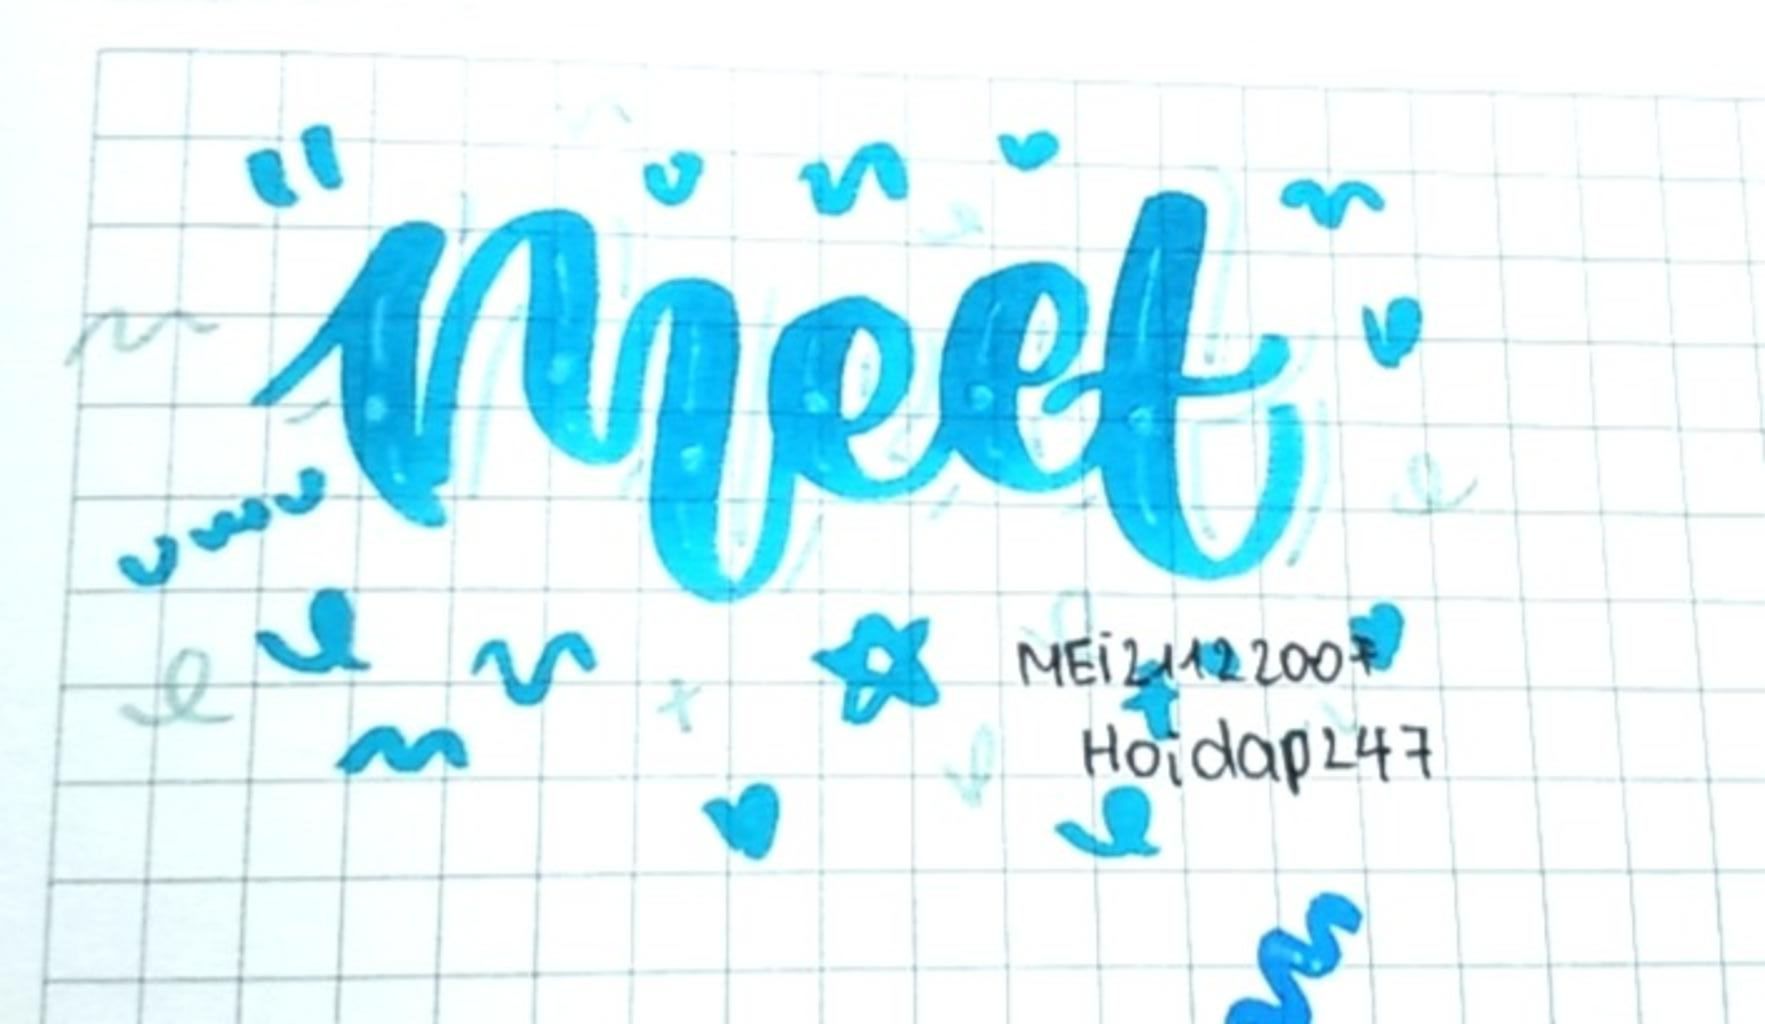 Meet
MEi21122007
Hoidap247